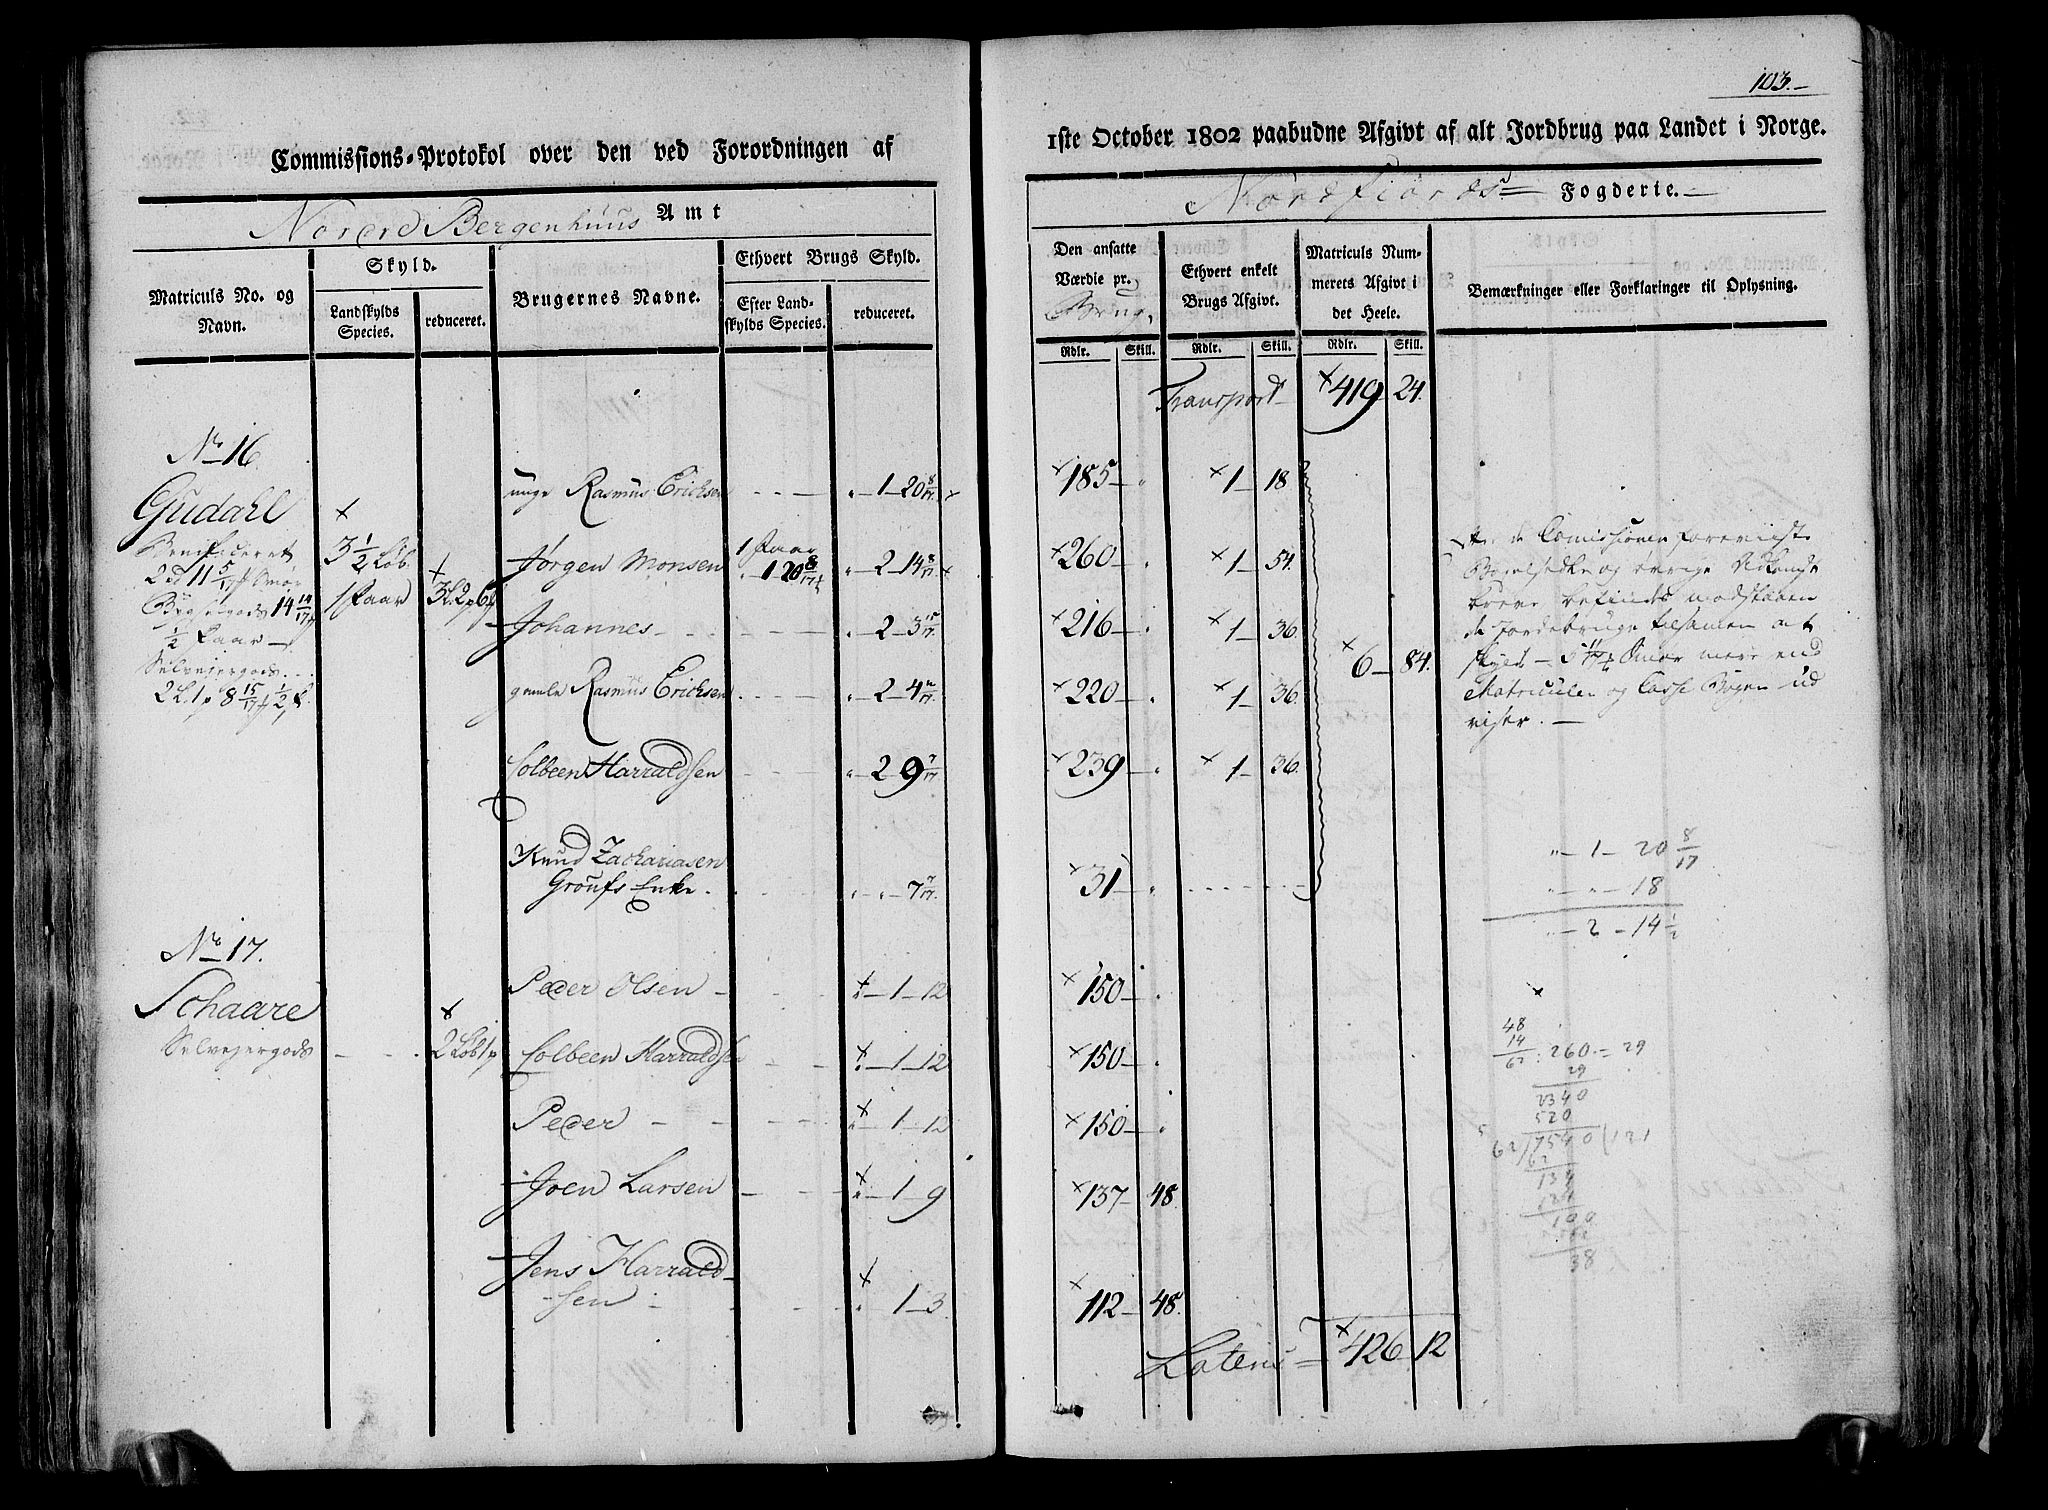 103.
Commissions-Protokol over den ved Forordningen af
1ste October 1802 paabudne Afgivt af alt Jordbrug paa Landet i Norge.
Nordre Bergenhuus Amt
Nordfiords Fogderie.
Matriculs No. og Navn.
Skyld.
Landskylds Species.
reduceret.
Brugernes Navne.
Ethvert Brugs Skyld.
Efter Landskylds Species.
reduceret.
Den ansatte Værdie pr. Brug.
Ethvert enkelt Brugs Afgivt.
Matriculs Nummerets Afgivt i det Heele.
Bemærkninger eller Forklaringer til Oplysning.
Rdlr. Skill. Rdlr. Skill. Rdlr. Skill.
Transport 419 24.
No 16.
Gudahl
Beneficeret
2 11 5/17 Smør
Bygselgods 14 14/17
1/2 Faar
Selvejergods
2 L. 1 p 8 15/17 1/2 f.
3 1/2 Løb.
1 Faar
3 L. 2 p 6
unge Rasmus Erichsen 1-20 8/17. 185 1-18
Jørgen Monsen 1 Faar 1-20 8/17 2-14 8/17. 260 1-54.
Johannes 2-3 15/17. 216 1-36.
gamle Rasmus Erichsen 2-4 220 1-36.
Colbeen Harraldsen 2-9 7/17 239 1-36.
6-84.
Knud Zachariasen
Groufs Enke. 7 7/17. 31
de Comissionen foreviiste
Bøxelsedle og øvrige Adkomst
breve befindes modstaaen
de Jordebruge tilsamen at
skylde Smør mere end
Matriculen og Casse Bogen ud
viser.
1-20 8/17
18
2-14 1/2
No 17.
Schaare
Selvejergods 2 Løb 1 p
Peder Olsen 1-12 150
Colbeen Harraldsen 1-12 150
Peder 1-12 150
Joen Larsen 1-9 137-48.
Jens Harrald-
sen 1-3 112-48.
48
14
62 : 260 = 29
29
2340
520
62/7540/121
62
134
124
100
38
Lateris 426-12